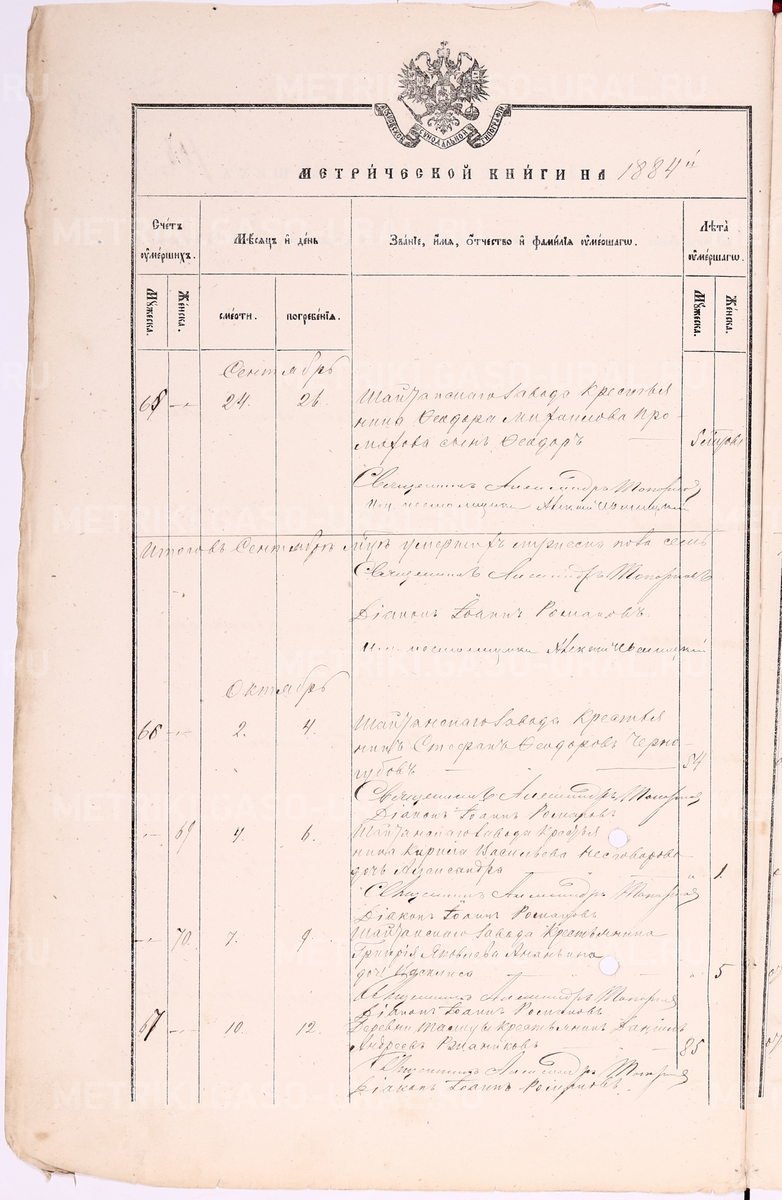 МОСКОВСК. СѴНОДАЛЬНОЙ ТИПОГРАФІИ
МЕТРИ́ЧЕСКОЙ КНИ́ГИ НА 1884 й
Сче́тъ оуме́ршихъ.
Мѣ́сяцъ и҆ де́нь
Зва́нїе, и҆́мя, ѻ҆́тчество и҆ фами́лїя оуме́ршагѡ.
Лѣ́та оуме́ршагѡ.
Мꙋ́жеска.
Же́нска.
сме́рти.
погребе́нїя.
Мꙋ́жеска.
Же́нска.
Сентябрь
65 24. 26. Шайтанскаго завода крестья
нина Ѳеодора Михаилова
сынъ Ѳеодоръ
Священникъ Александръ Топорковъ
И. д. псаломщика Алексій
Итого въ Сентябрѣ м-цѣ умершихъ мужеска пола семь
Священникъ Александръ Топорковъ
Діаконъ Іоаннъ Романовъ.
И. д. псаломщика Алексій
Октябрь
66 2. 4. Шайтанскаго завода крестья
нинъ Стефанъ Ѳеодоровъ Черно
губовъ 54
Священникъ Александръ Топорковъ
Діаконъ Іоаннъ Романовъ
69 4. 6. Шайтанскаго завода крестья
нина Кирила Васильева
дочь Александра 1.
Священникъ Александръ Топорковъ
Діаконъ Іоаннъ Романовъ
70. 7. 9. Шайтанскаго завода крестьянина
Григорія Яковлева Ананьина
дочь 5
Священникъ Александръ Топорковъ
Діаконъ Іоаннъ Романовъ
67 10. 12. Деревни крестьянинъ
Андреевъ 85
Священникъ Александръ Топорковъ
Діаконъ Іоаннъ Романовъ.